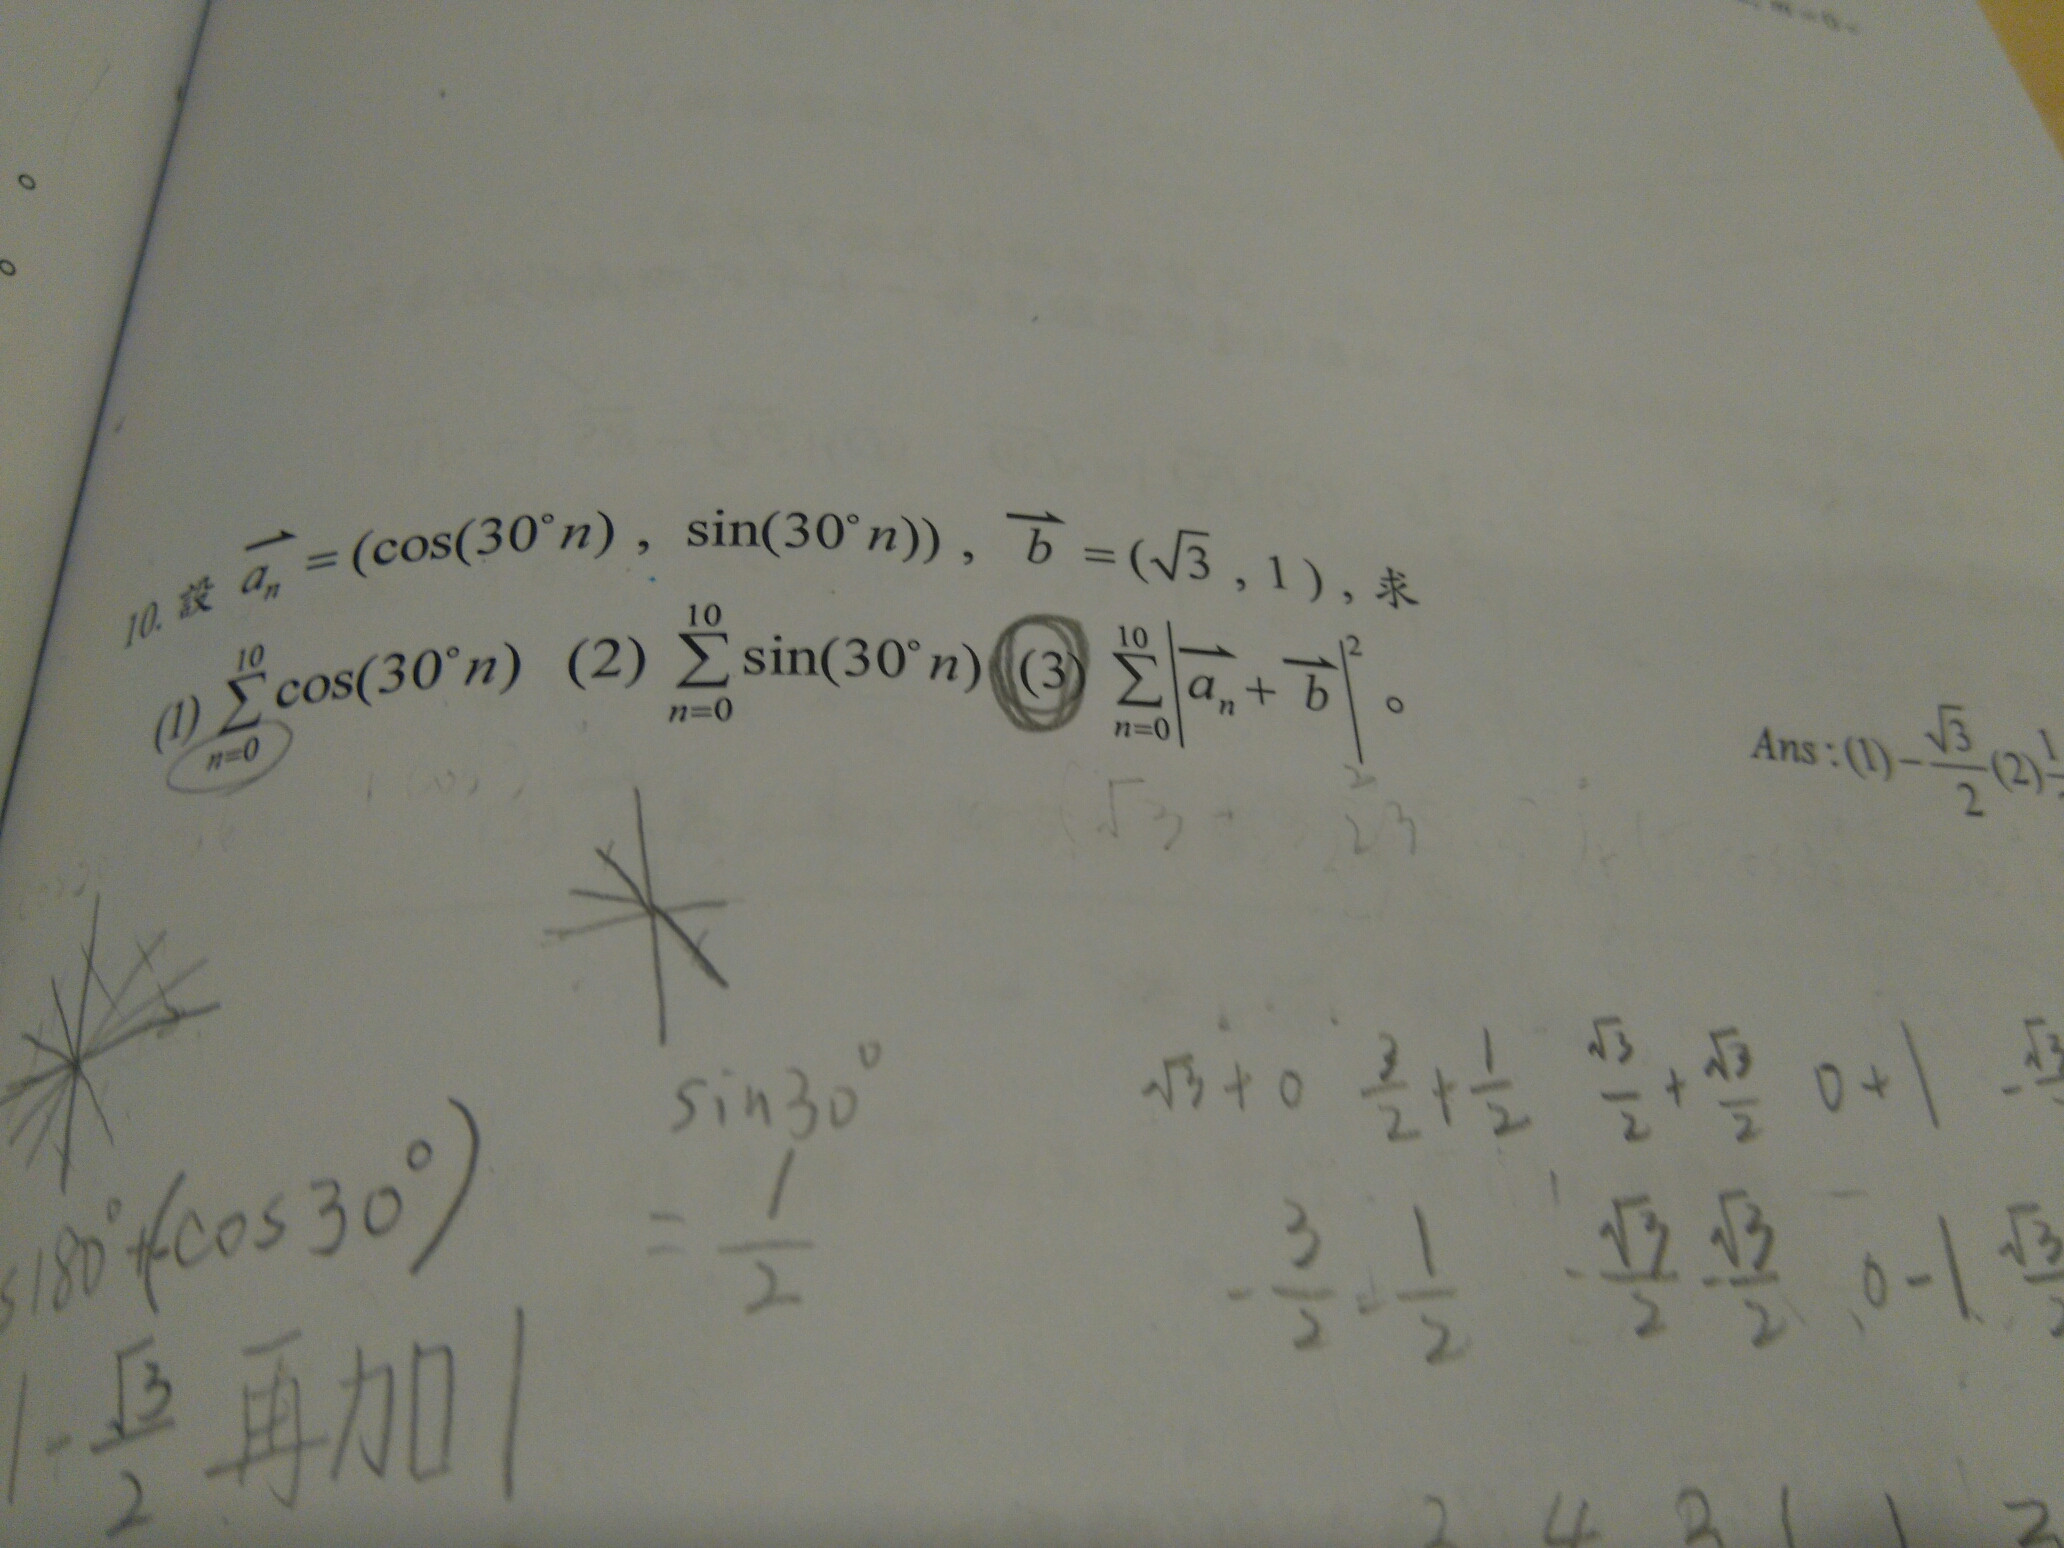 10. 設 a_n = (cos(30°n) , sin(30°n)) , b = (√3 , 1) , 求
(1) ∑_{n=0}^{10} cos(30°n) (2) ∑_{n=0}^{10} sin(30°n) (3) ∑_{n=0}^{10} |a_n + b|^2 。
Ans : (1) -√3/2 (2) 1
(√3
23
sin30°
= 1/2
180° + (-cos30°)
1 - √3/2 再加1
√3 + 0 3/2 + 1/2 √3/2 + √3/2 0 + 1 - √3
- 3/2 - 1/2 - √3/2 - √3/2 0 - 1 √3/2
2 4 2 1 1 2